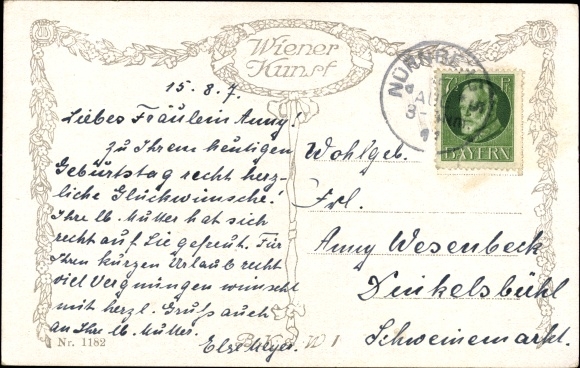 Wiener
Kunst
NÜRNBE
AUG
7½ Pf
BAYERN
15. 8. 7.
Liebes Fräulein Anny!
zu Ihrem heutigen
Geburtstag recht herz-
liche Glückwünsche!
Ihre lb. Mutter hat sich
recht auf Sie gefreut. Für
Ihren kurzen Urlaub recht
viel Vergnügen wünscht
mit herzl. Gruß auch
an Ihre lb. Mutter.
Else Meyer.
Wohlgeb.
Frl.
Anny Wesenbeck
Dinkelsbühl
Schweinemarkt.
Nr. 1182
B.K.W.I